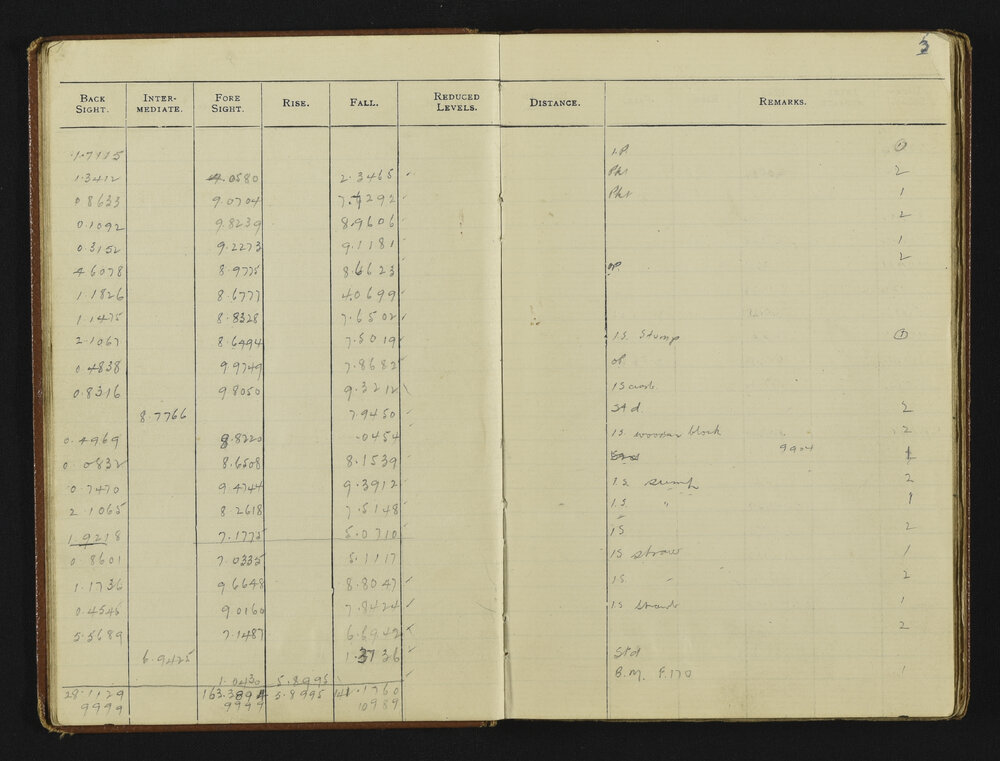 3
BACK SIGHT. INTER-MEDIATE. FORE SIGHT. RISE. FALL. REDUCED LEVELS. DISTANCE. REMARKS.
1.7115 I.P. 1
1.3412 4.0580 2.3465 Pkt 2
0.8633 9.0704 7.7292 Pkt 1
0.1092 9.8239 8.9606 2
0.3152 9.2273 9.1181 1
4.6078 8.9775 8.6623 OP. 2
1.1826 8.6777 4.0699
1.1475 8.8328 7.6502
2.1067 8.6494 7.5019 I.S. Stump 1
0.4838 9.9749 7.8682 OP.
0.8316 9.8050 9.3212 IS
8.7766 7.9450 Std. 2
0.4969 8.8220 .0454 I.S. wooden block 2
0.0832 8.6508 8.1539 9904 1
0.7470 9.4744 9.3912 I.S. stump 2
2.1065 8.2618 7.5148 I.S. " 1
1.9218 7.1775 5.0710 IS 2
0.8601 7.0335 5.1117 IS 1
1.1736 9.6648 8.8047 I.S. " 2
0.4545 9.0160 7.8424 IS 1
5.5689 7.1487 6.6942 2
6.9425 1.3736 Std
1.0430 5.8995 B.M. F.170 1
29.1129 163.3894 5.8995 141.1760
9999 9999 10989